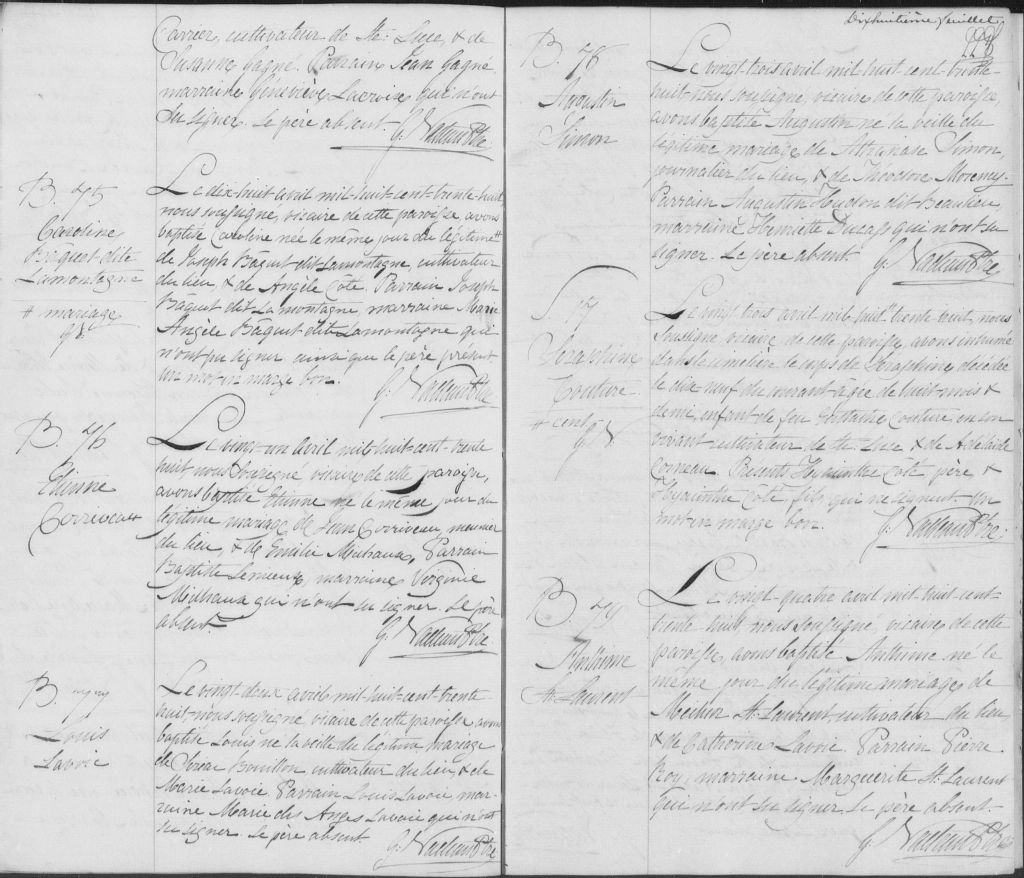 Carrier, cultivateur de Ste. Luce, & de
Susanne Gagné. Parrain Jean Gagné
marraine Geneviève Lacroix qui n'ont
su signer. Le père absent.
B. 75
Caroline
Bâquet dite
Lamontagne
# mariage
Le dix-huit avril mil-huit-cent-trente-huit
nous soussigné, vicaire de cette paroisse avons
baptisé Caroline née le même jour du légitime #
de Joseph Bâquet dit Lamontagne, cultivateur
du lieu, & de Angèle Côté. Parrain Joseph
Bâquet dit Lamontagne, marraine Marie
Angèle Bâquet dit Lamontagne qui
n'ont pu signer ainsi que le père présent
Un mot en marge bon.
B. 76
Etienne
Corriveau
Le vingt-un avril mil-huit-cent-trente
huit, nous soussigné vicaire de cette paroisse,
avons baptisé Etienne né le même jour du
légitime mariage de Jean Corriveau, meunier
du lieu, & de Emilie Michaux, Parrain
Baptiste Lemieux, marraine Virginie
Michaux qui n'ont su signer. Le père
absent.
B. 77
Louis
Lavoie
Le vingt deux avril mil-huit-cent-trente-
huit, nous soussigné vicaire de cette paroisse, avons
baptisé Louis né la veille du légitime mariage
de Bouillon, cultivateur du lieu, & de
Marie Lavoie Parrain Louis Lavoie, mar-
raine Marie des Anges Lavoie qui n'ont
su signer. Le père absent.
Dixhuitième feuillet
B. 78
Augustin
Simon
Le vingt-trois avril mil-huit-cent-trente-
huit, nous soussigné, vicaire de cette paroisse,
avons baptisé Augustin né la veille du
légitime mariage de Athanase Simon,
journalier du lieu, & de Théodore Morency.
Parrain Augustin Hudon dit Beaulieu,
marraine Henriette Ducas qui n'ont su
signer. Le père absent.
S. 17
Séraphine
Couture
# cent
Le vingt trois avril mil-huit-trente-huit, nous
soussigné vicaire de cette paroisse, avons inhumé
dans le cimetière le corps de Séraphine décédée
le dix neuf du courant agée de huit mois &
demi, enfant de feu Couture, en son
vivant cultivateur de Ste. Luce & de Adelaide
Présents Hyacinthe Côté père, &
Hyacinthe Côté fils, qui ne signent. Un
mot en marge bon.
B. 79
Anthime
St. Laurent
Le vingt-quatre avril mil-huit-cent-
trente-huit, nous soussigné vicaire de cette
paroisse, avons baptisé Anthime né le
même jour du légitime mariage de
St. Laurent, cultivateur du lieu,
& de Catherine Lavoie. Parrain Pierre
Roy, marraine Marguerite St. Laurent
qui n'ont su signer. Le père absent.